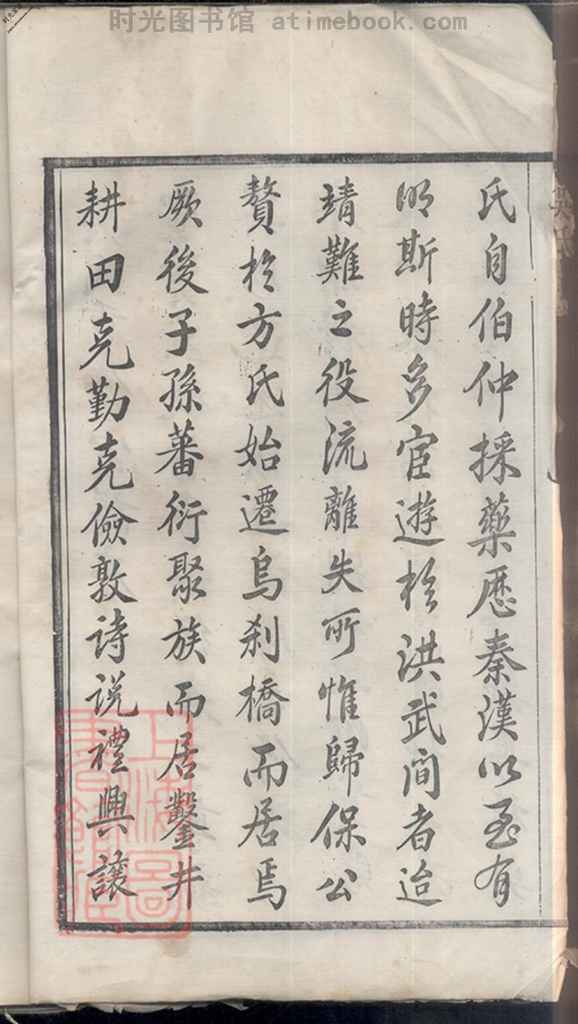 时光图书馆 atimebook.com
氏自伯仲採藥歷秦漢以至有
明斯時多宦遊於洪武间者迨
靖難之役流離失所惟歸保公
贅於方氏始遷烏刹橋而居焉
厥後子孫蕃衍聚族而居鑿井
耕田克勤克儉敦詩説禮興讓